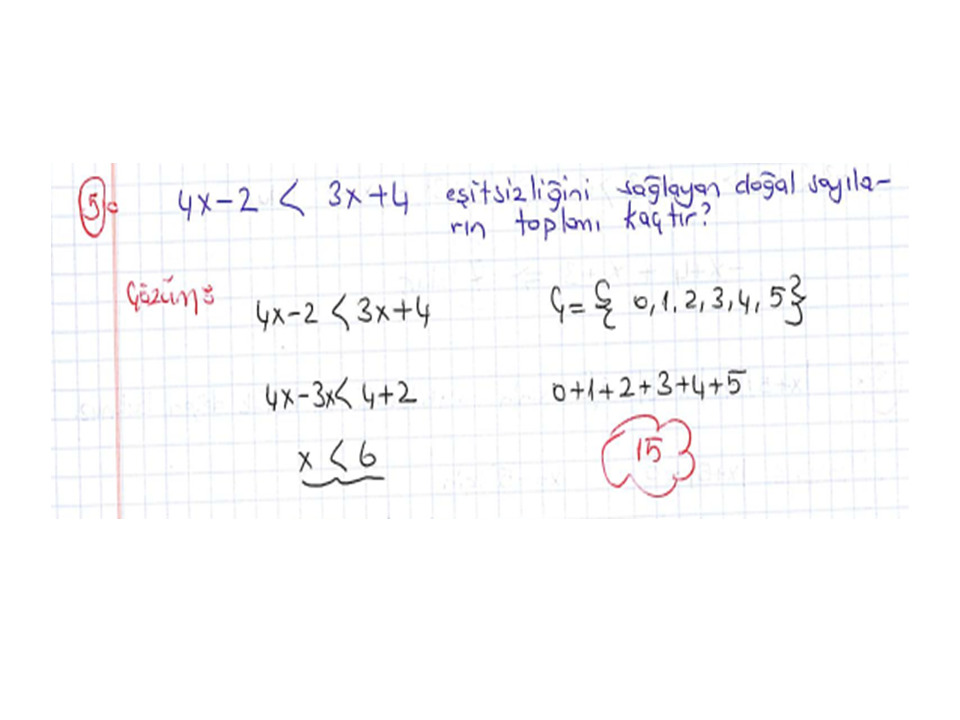 5. 4x-2 < 3x+4 eşitsizliğini sağlayan doğal sayıla-
rın toplamı kaçtır?
Çözüm:
4x-2 < 3x+4
4x-3x < 4+2
x < 6
Ç = { 0, 1, 2, 3, 4, 5 }
0+1+2+3+4+5
15